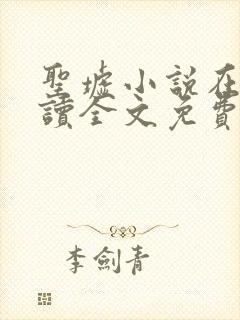 聖墟小說在
讀全文免費
李劍青